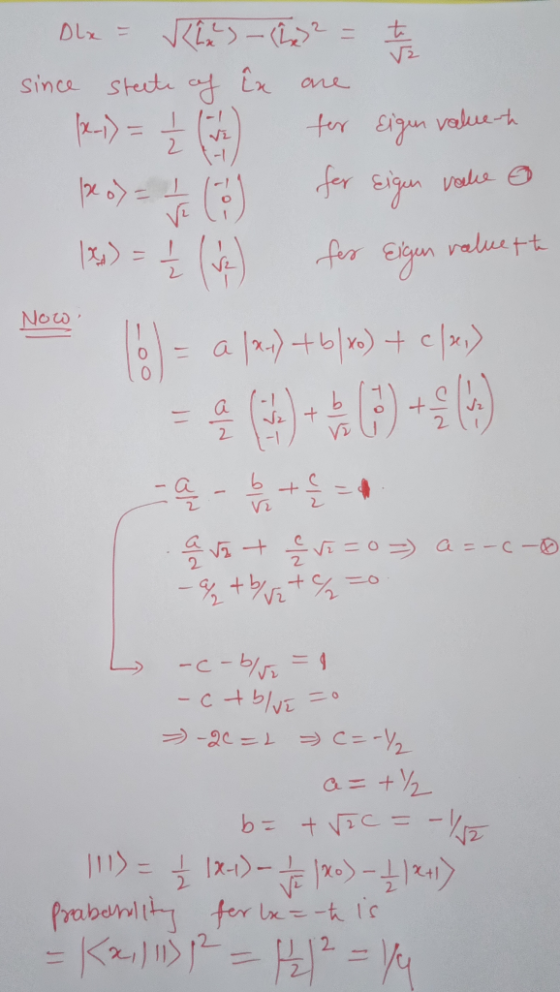 DLx = √⟨L̂x²⟩ - ⟨L̂x⟩² = ħ/√2
since state of L̂x are
|x-1⟩ = 1/2 (-1 √2 -1) for Eigen value -ħ
|x0⟩ = 1/√2 (-1 0 1) for Eigen value 0
|x1⟩ = 1/2 (1 √2 1) for Eigen value +ħ
Now.
(1 0 0) = a |x-1⟩ + b|x0⟩ + c|x1⟩
= a/2 (-1 √2 -1) + b/√2 (-1 0 1) + c/2 (1 √2 1)
-a/2 - b/√2 + c/2 = 1
a/2 √2 + c/2 √2 = 0 ⇒ a = -c - ⊗
-a/2 + b/√2 + c/2 = 0
-c - b/√2 = 1
-c + b/√2 = 0
⇒ -2c = 1 ⇒ c = -1/2
a = +1/2
b = +√2c = -1/√2
|11⟩ = 1/2 |x-1⟩ - 1/√2 |x0⟩ - 1/2 |x+1⟩
Probability for lx = -ħ is
= |⟨x,|11⟩|² = |1/2|² = 1/4